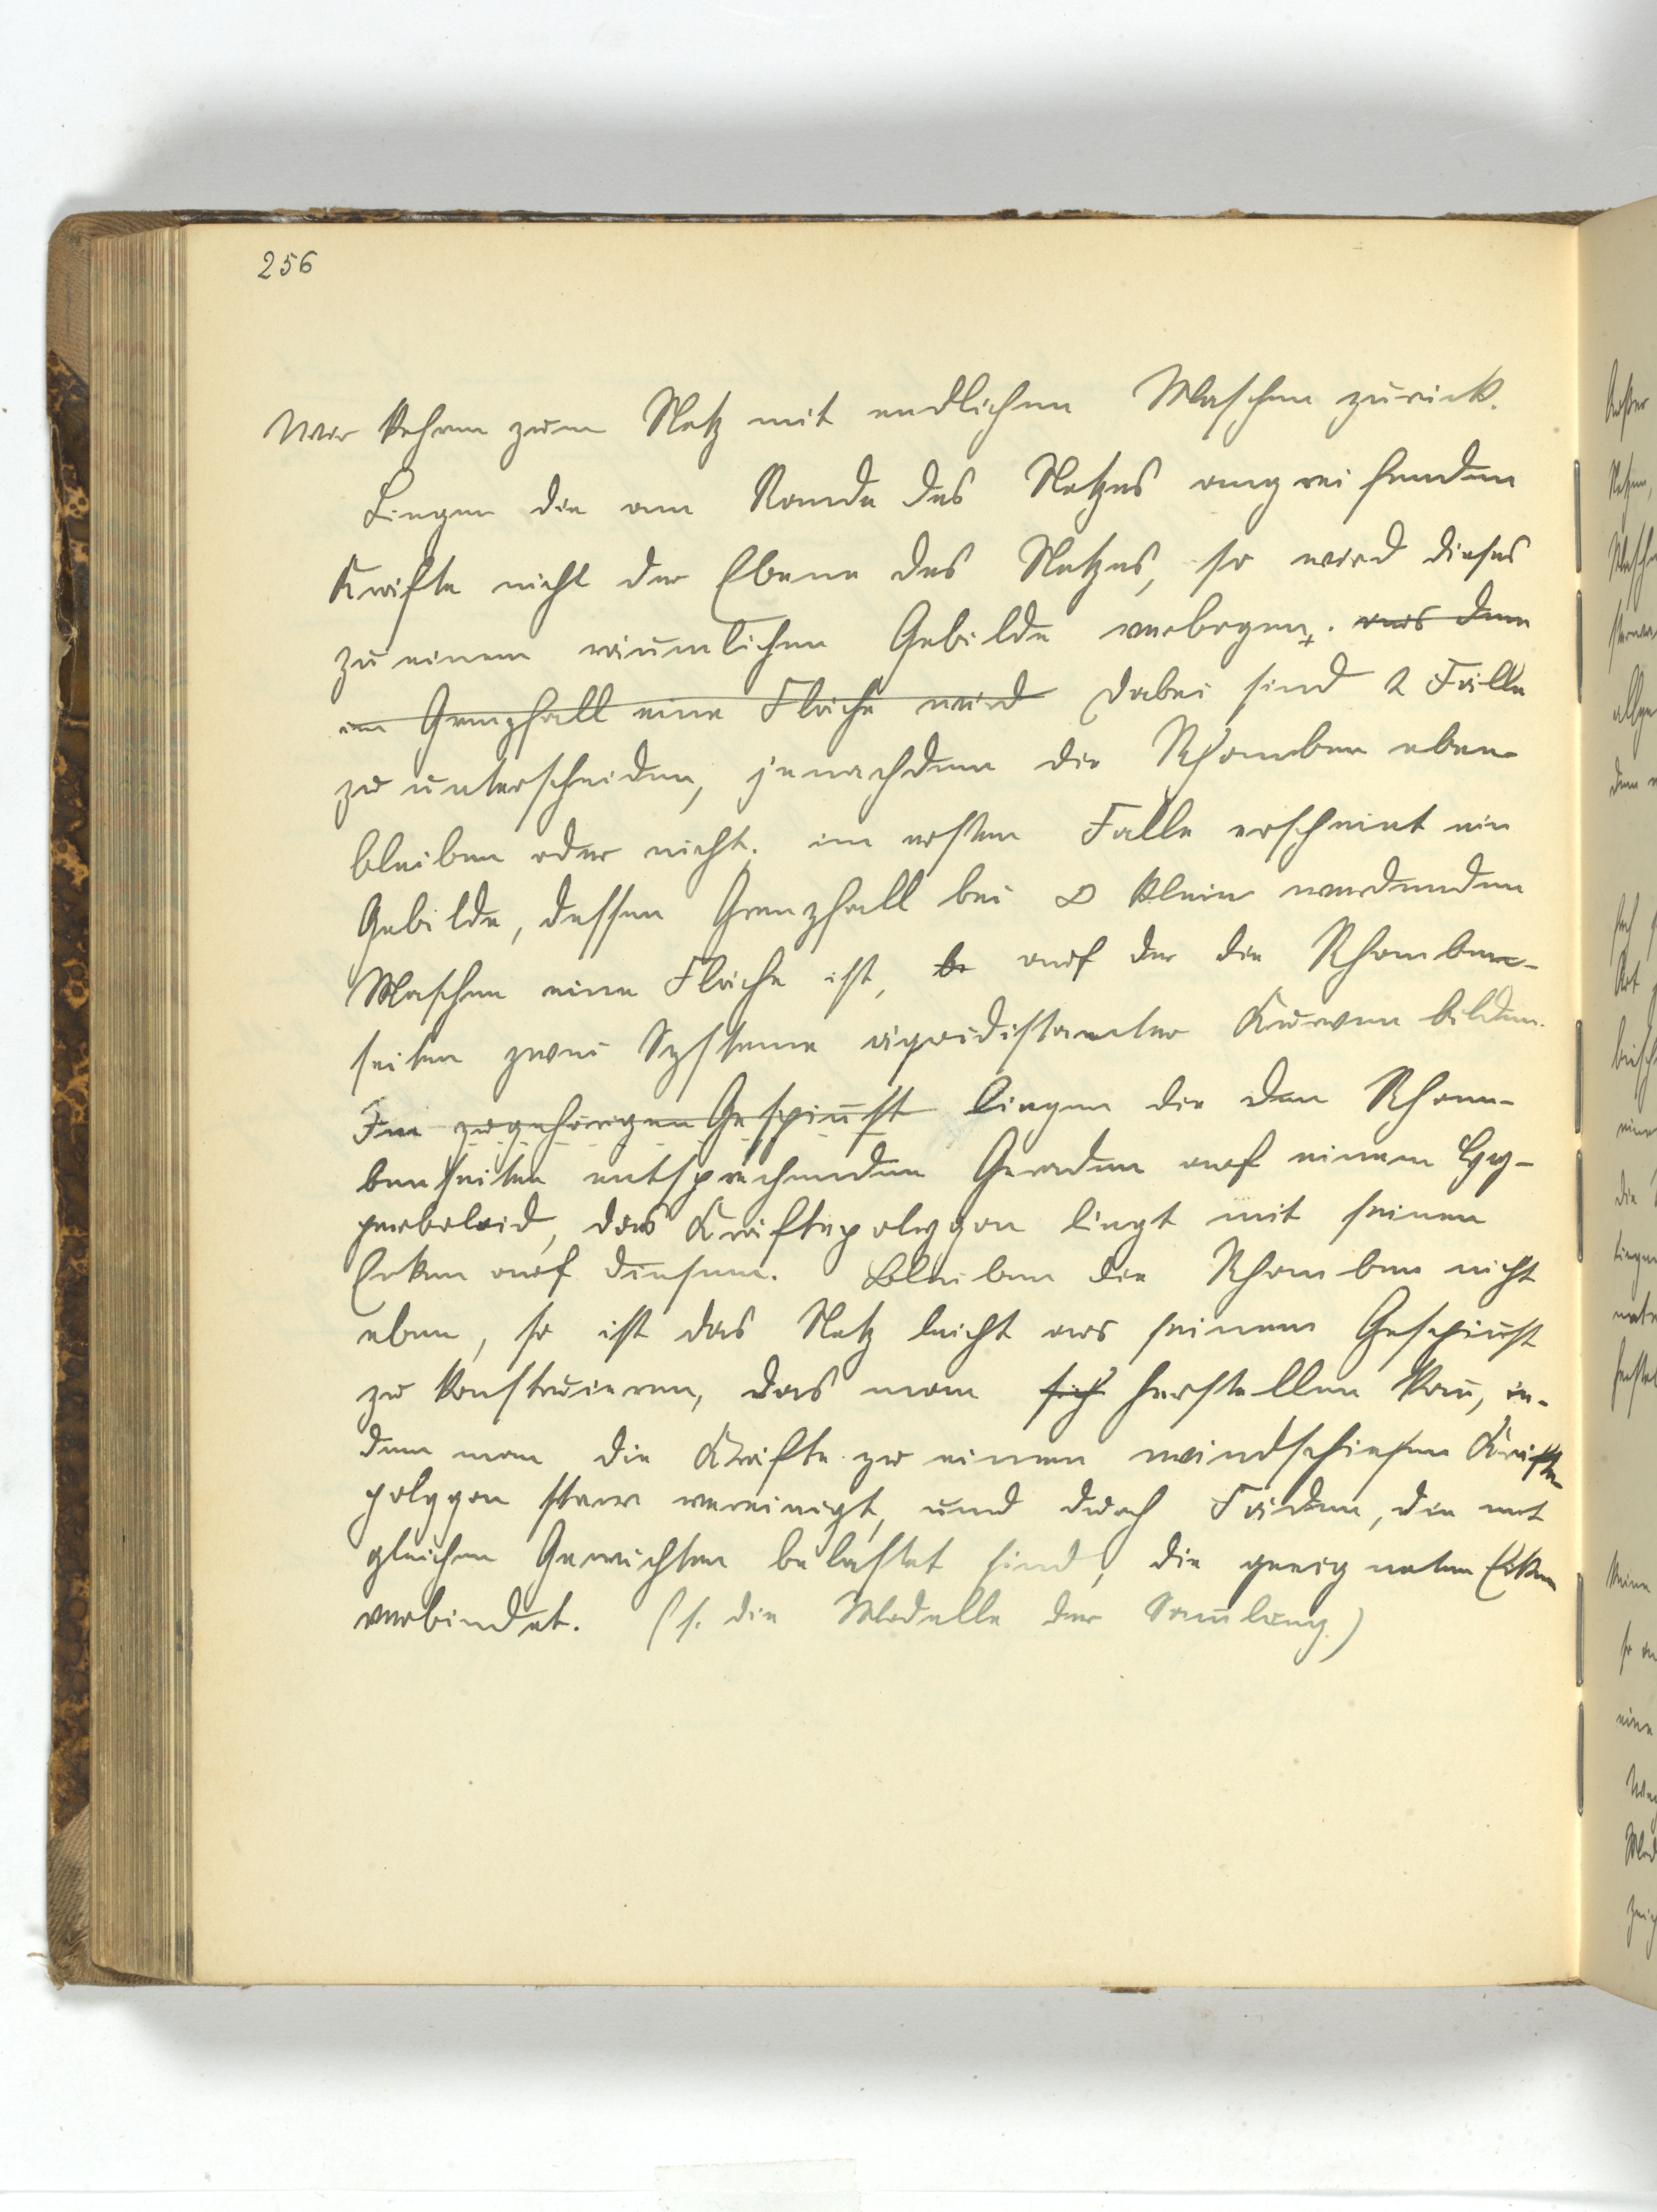 256
Wir kehren zum Netz mit endlichen Maschen zurück.
Liegen die am Rande des Netzes angreifenden
Kräfte nicht der Ebene des Netzes, so wird dieses
zu einem räumlichen Gebilde verbogen. aus dem
im Grenzfall eine Fläche wird Dabei sind 2 Fälle
zu unterscheiden, jenachdem die Rhomben eben
bleiben oder nicht. im ersten Falle erscheint ein
Gebilde, dessen Grenzfall bei ∞ klein werdenden
Maschen eine Fläche ist, be auf der die Rhomben-
seiten zwei Systeme äquidistanter Kurven bilden.
Im zugehörigen Gespinst liegen die den Rhom-
benseiten entsprechenden Geraden auf einem Hy-
perboloid, das Kräftepolygon liegt mit seinen
Ecken auf diesem. Bleiben die Rhomben nicht
eben, so ist das Netz leicht aus seinem Gespinst
zu konstruieren, das man sich herstellen kan̄, in-
dem man die Kräfte zu einem windschiefen Kräfte-
polygon starr vereinigt, und durch Fäden, die mit
gleichen Gewichten belastet sind, die geeigneten Ecken
verbindet. (s. die Modelle der Sam̄lung.)